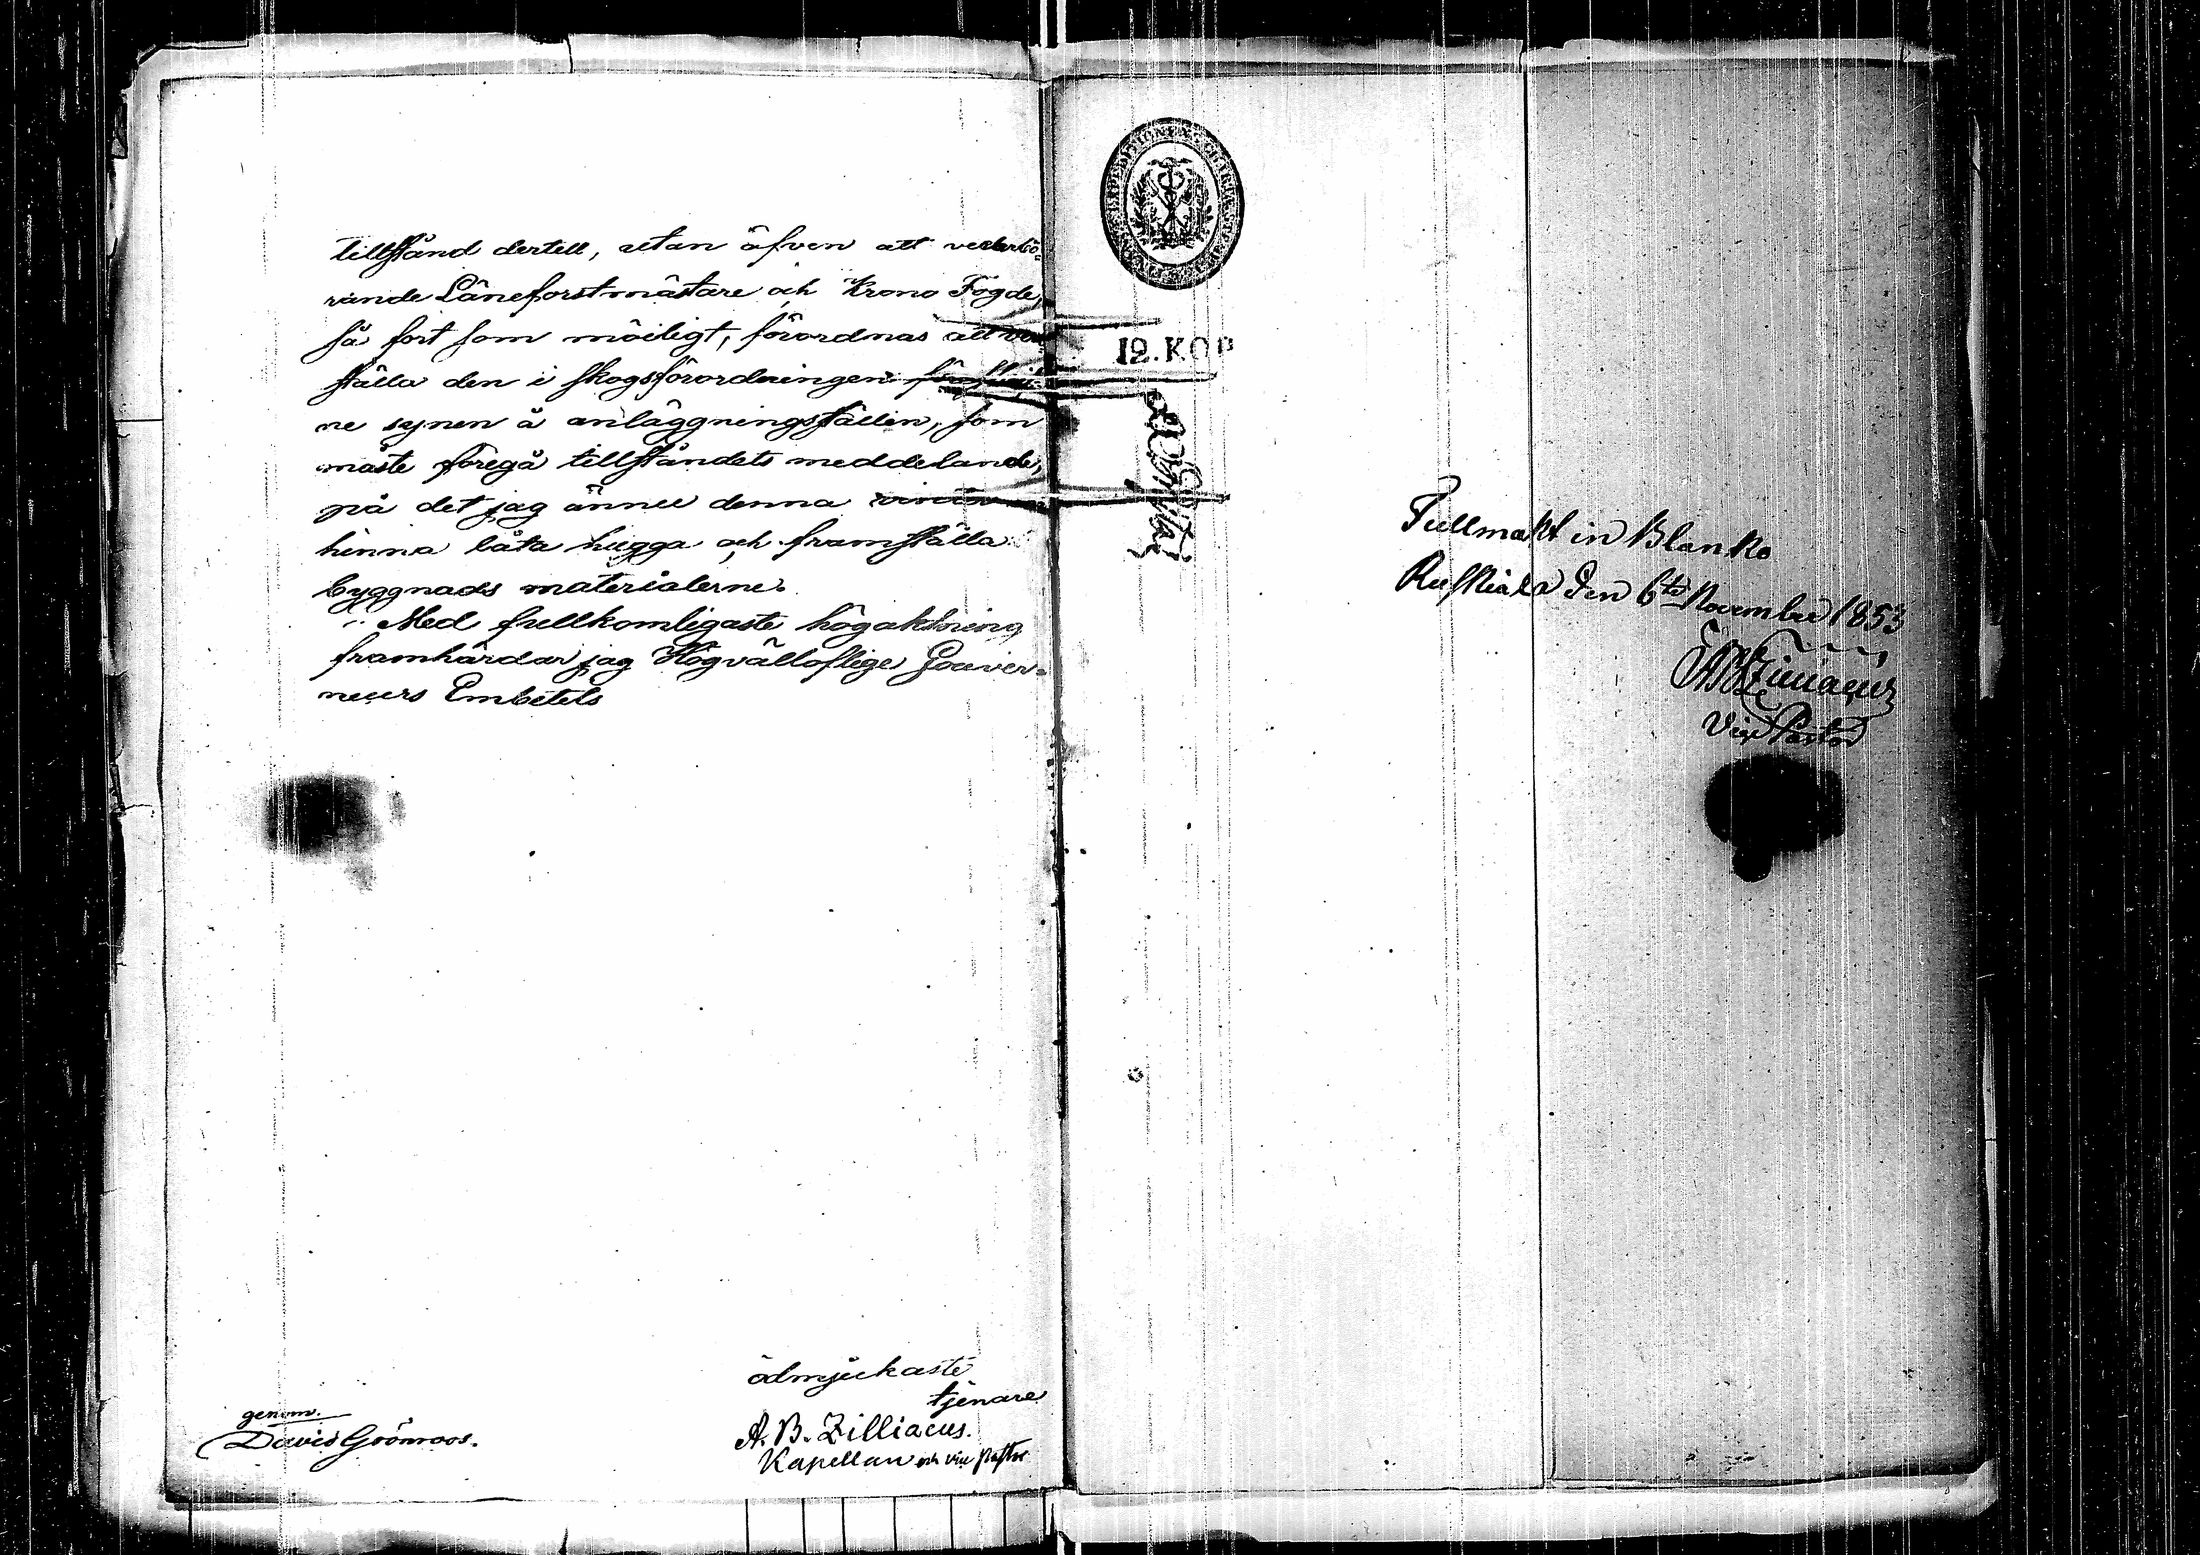 tillstånd dertill, utan äfven att vederbö-
rande Läneforstmästare och Krono Fogde,
så fort som möiligt, förordnas att
ställa den i skogsförordningen
ne synen å anläggningsställen, som
måste föregå tillståndets meddelande,
på det jag ännu denna vinter
hinna låta hugga och framställa
byggnads materialerne.
Med fullkomligaste högaktning
framhärdar jag Högvälloflige Gouver-
neurs Embetets
ödmjukaste
tjenare
A. B. Zilliacus.
Kapellan och vice pastor
genom.
David Grönroos.
12. KOP
Fullmakt in Blanko
Ruskiala den 6te November 1853
AB Zilliacus
Vice Pastor